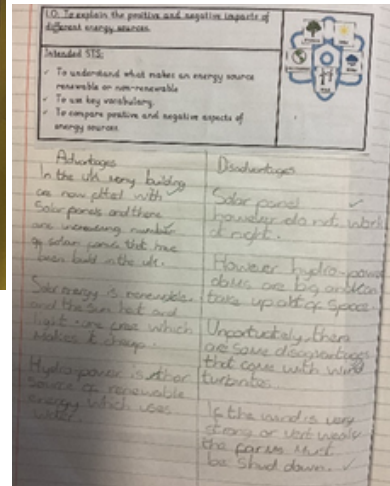 L.O: To explain the positive and negative impacts of
different energy sources.
Intended STS:
✓ To understand what makes an energy source
renewable or non-renewable
✓ To use key vocabulary.
✓ To compare positive and negative aspects of
energy sources.
Advantages
In the uk very building
are now fitted with
Solar panels and there
are increasing number
of solar panels that have
been build in the uk.
Solar energy is renewable.
and the sun heat and
light are free which
Makes it cheap.
Hydro-power is
source of renewable
energy which uses
water.
Disadvantages
Solar panel
however do not work
at night.
However hydro-power
dams are big and can
take up a lot of space.
Unfortunately, there
are some disadvantages
that come with wind
turbines.
If the wind is very
strong or very weak
the farms must
be shud down.